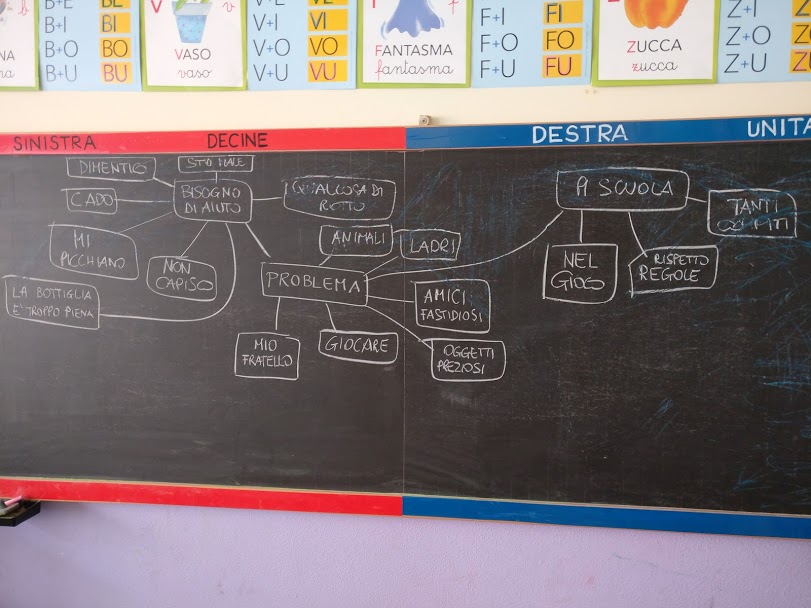 B+E BE
B+I BI
B+O BO
B+U BU
NA
na
V
VASO
vaso
V+E VE
V+I VI
V+O VO
V+U VU
F f
FANTASMA
fantasma
F+I FI
F+O FO
F+U FU
ZUCCA
zucca
Z+I
Z+O
Z+U
SINISTRA DECINE DESTRA UNITA
DIMENTICO
STO MALE
CADO
BISOGNO
DI AIUTO
QUALCOSA DI
ROTTO
MI
PICCHIANO
NON
CAPISO
LA BOTTIGLIA
E' TROPPO PIENA
ANIMALI
LADRI
PROBLEMA
AMICI
FASTIDIOSI
MIO
FRATELLO
GIOCARE
OGGETTI
PREZIOSI
A SCUOLA
TANTI
NEL
GIOCO
RISPETTO
REGOLE